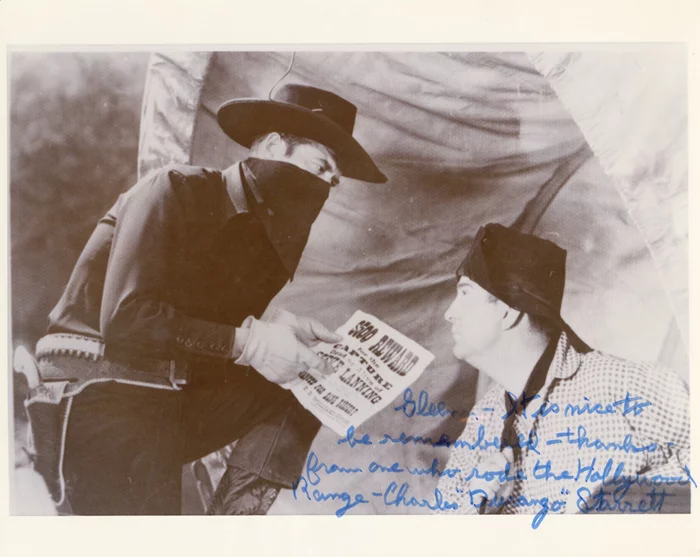 $500 REWARD
for the
CAPTURE
LANNING
FOR BANK ROBBERY
- It is nice to
be remembered - thanks -
from one who rode the Hollywood
Range - Charles "Durango" Starrett